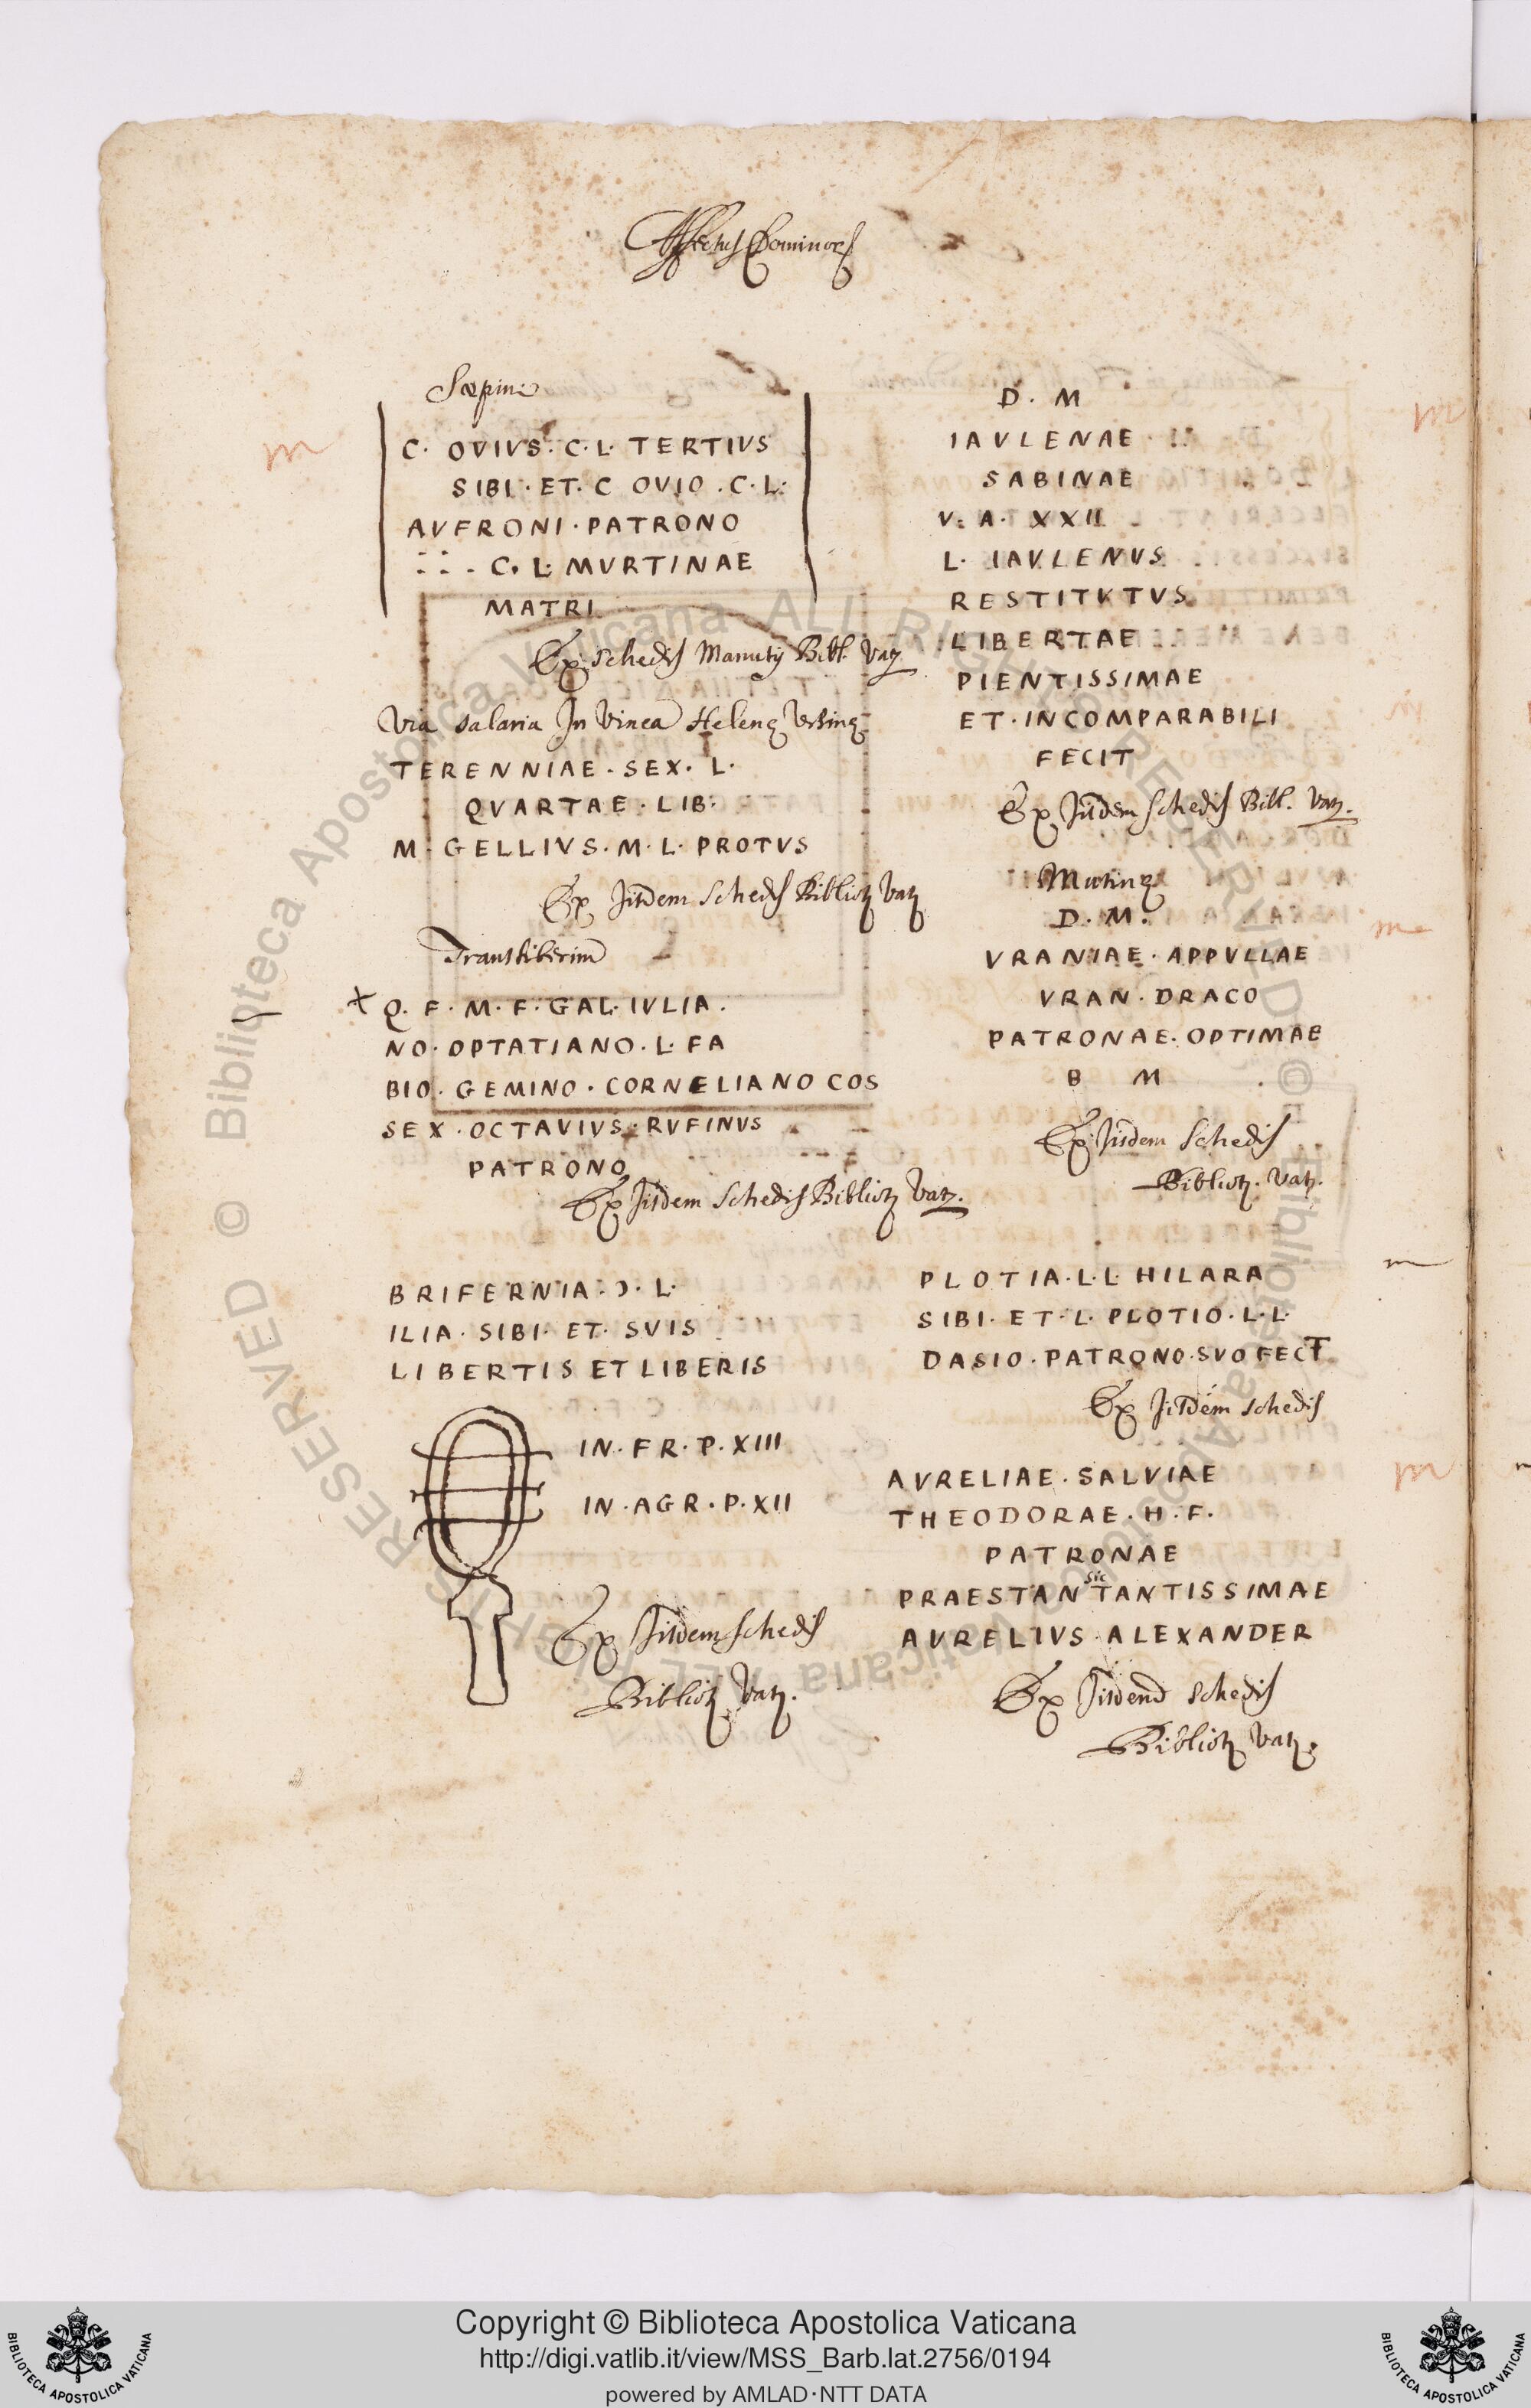 Affectus Dominor
Sæpini
C. OVIVS. C. L. TERTIVS
SIBI. ET. C OVIO. C. L.
AVFRONI. PATRONO
C. L. MVRTINAE
MATRI
Ex schedis Manutij Bibl. Vat.
Via salaria In Vinea Helenę Vrsinę
TERENNIAE. SEX. L.
QVARTAE. LIB.
M. GELLIVS. M. L. PROTVS
Ex Jisdem schedis Biblioth Vat
Transtiberim
x Q. F. M. F. GAL. IVLIA.
NO. OPTATIANO. L. FA
BIO. GEMINO. CORNELIANO COS
SEX. OCTAVIVS. RVFINVS
PATRONO
Ex Jisdem schedis Biblioth Vat.
BRIFERNIA. Ɔ. L.
ILIA. SIBI. ET. SVIS
LIBERTIS ET LIBERIS
IN. FR. P. XIII
IN. AGR. P. XII
Ex Jisdem schedis
Biblioth Vat.
D. M
IAVLENAE
SABINAE
V. A. XXII
L. IAVLENVS
RESTITVTVS
LIBERTAE
PIENTISSIMAE
ET. INCOMPARABILI
FECIT
Ex Jisdem schedis Bibl. Vat.
Mutinę
D. M.
VRANIAE. APPVLLAE
VRAN. DRACO
PATRONAE. OPTIMAE
B M
Ex Jisdem schedis
Biblioth. Vat.
PLOTIA. L. L HILARA
SIBI. ET. L. PLOTIO. L. L.
DASIO. PATRONO. SVO FECT
Ex Jisdem schedis
AVRELIAE. SALVIAE
THEODORAE. H. F.
PATRONAE
sic
PRAESTANTANTISSIMAE
AVRELIVS. ALEXANDER
Ex Jisdem schedis
Biblioth Vat.
m
m
m
m
m
© Biblioteca Apostolica Vaticana ALL RIGHTS RESERVED
Copyright © Biblioteca Apostolica Vaticana
http://digi.vatlib.it/view/MSS_Barb.lat.2756/0194
powered by AMLAD·NTT DATA
BIBLIOTECA APOSTOLICA VATICANA
BIBLIOTECA APOSTOLICA VATICANA